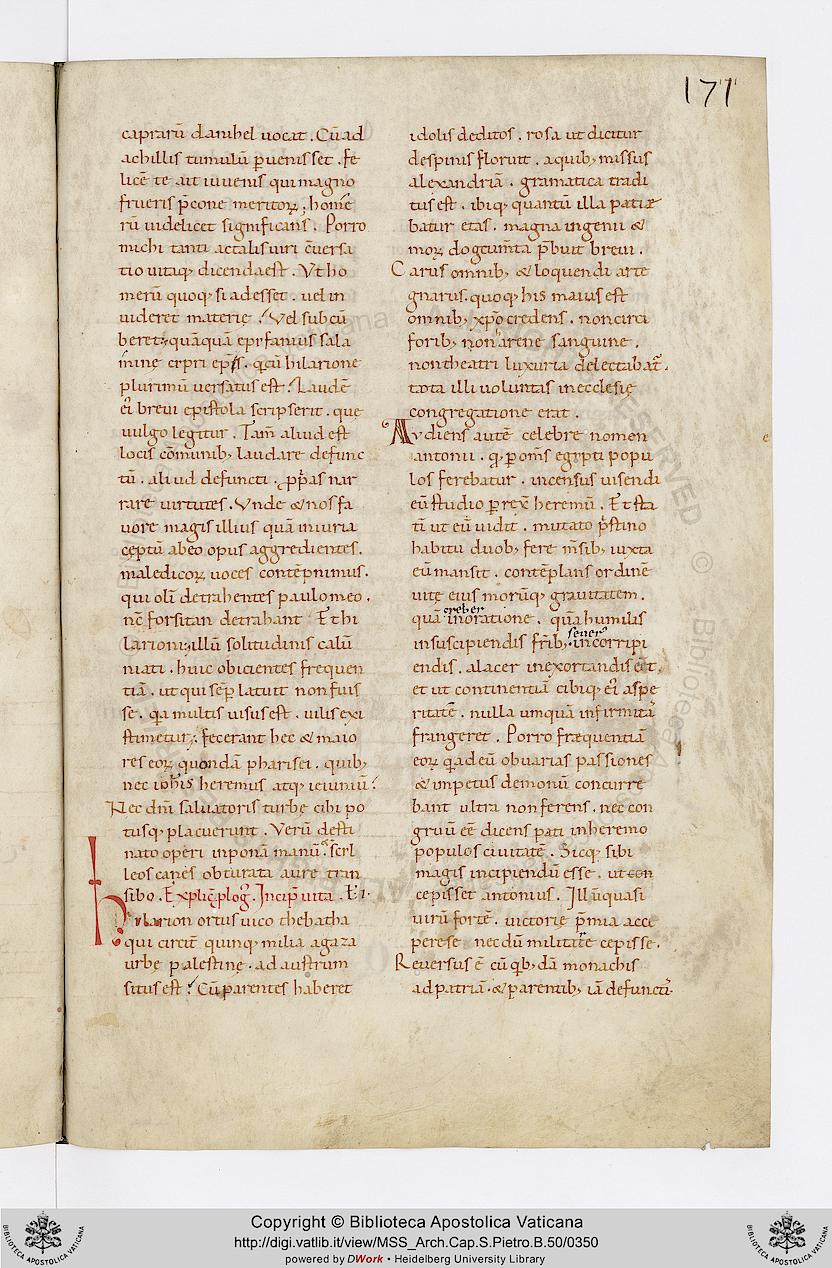 177
caprarū danihel uocat. Cū ad
achillis tumulū ꝑuenisset. fe
licē te ait iuuenis qui magno
frueris p̄cone meritoꝝ; home
rū uidelicet significans. Porro
michi tanti ac talis uiri c̄uersa
tio uitaq; dicenda est. Vt ho
merū quoq; si adesset. uel in
uideret materie. Vel subcū
beret; quāquā epyfanius sala
mine cypri ep̄s. q̄ cū hilarione
plurimū uersatus est. Laudē
ei breui epistola scripserit. que
uulgo legitur. Tam̄ aliud est
locis cōmunib; laudare defunc
tū. aliud defuncti. ꝓprias nar
rare uirtutes. Vnde & nos fa
uore magis illius quā iniuria
ceptū ab eo opus aggredientes.
maledicoꝝ uoces contēpnimus.
qui olī detrahentes paulo meo.
nc̄ forsitan detrahant & hi
larioni; illū solitudinis calū
niati. huic obicientes frequen
tiā. ut qui sēp latuit non fuis
se. q̄a multis uisus est. uilis exi
stimetur. fecerant hec & maio
res eoꝝ quondā pharisei. quib;
nec ioh̄is heremus atq; ieiuniū.
Nec dn̄i saluatoris turbe cibi po
tusq; placuerunt. Verū desti
nato operi inponā manū. & scyl
leos canes obturata aure tran
sibo. Explic̄ p̄log̅. Incip̄ uita. Ei.
Hylarion ortus uico thebatha
qui circit̄ quinq; milia a gaza
urbe palestine. ad austrum
situs est. Cū parentes haberet
idolis deditos. rosa ut dicitur
de spinis floruit. a quib; missus
alexandriā. gramatica tradi
tus est. ibiq; quantū illa patie
batur etas. magna ingenii &
moꝝ docum̄ta p̄buit breui.
Carus omnib; & loquendi arte
gnarus. quoq; his maius est
omnib; xp̄o credens. non circi
forib; non arene sanguine.
non theatri luxuria delectabat̄.
tota illi uoluntas in ecclesię
congregatione erat.
Audiens autē celebre nomen
antonii. q̄ ꝑ om̄s egypti popu
los ferebatur. incensus uisendi
eū studio ꝑrex̄ heremū. Et sta
tī ut eū uidit. mutato p̄stino
habitu duob; fere m̄sib; iuxta
eū mansit. contēplans ordinē
uite eius morūq; grauitatem.
creber
quā in oratione. quā humilis
seuer'
in suscipiendis fr̄ib; in corripi
endis. alacer in exortandis eēt.
et ut continentiā cibiq; ei aspe
ritatē. nulla umquā infirmitā
frangeret. Porro frequentiā
eoꝝ q̄ ad eū ob uarias passiones
& impetus demonū concurre
bant ultra non ferens. nec con
gruū eē dicens pati in heremo
populos ciuitatē. Sicq; sibi
magis incipiendū esse. ut
cepisset antonius. Illū quasi
uirū fortē. uictorię p̄mia acci
perese nec dū militare cepisse.
Reuersus ē cū qb;dā monachis
ad patriā. & parentib; iā defuncti.
Copyright © Biblioteca Apostolica Vaticana
http://digi.vatlib.it/view/MSS_Arch.Cap.S.Pietro.B.50/0350
powered by DWork • Heidelberg University Library
BIBLIOTECA APOSTOLICA VATICANA
BIBLIOTECA APOSTOLICA VATICANA